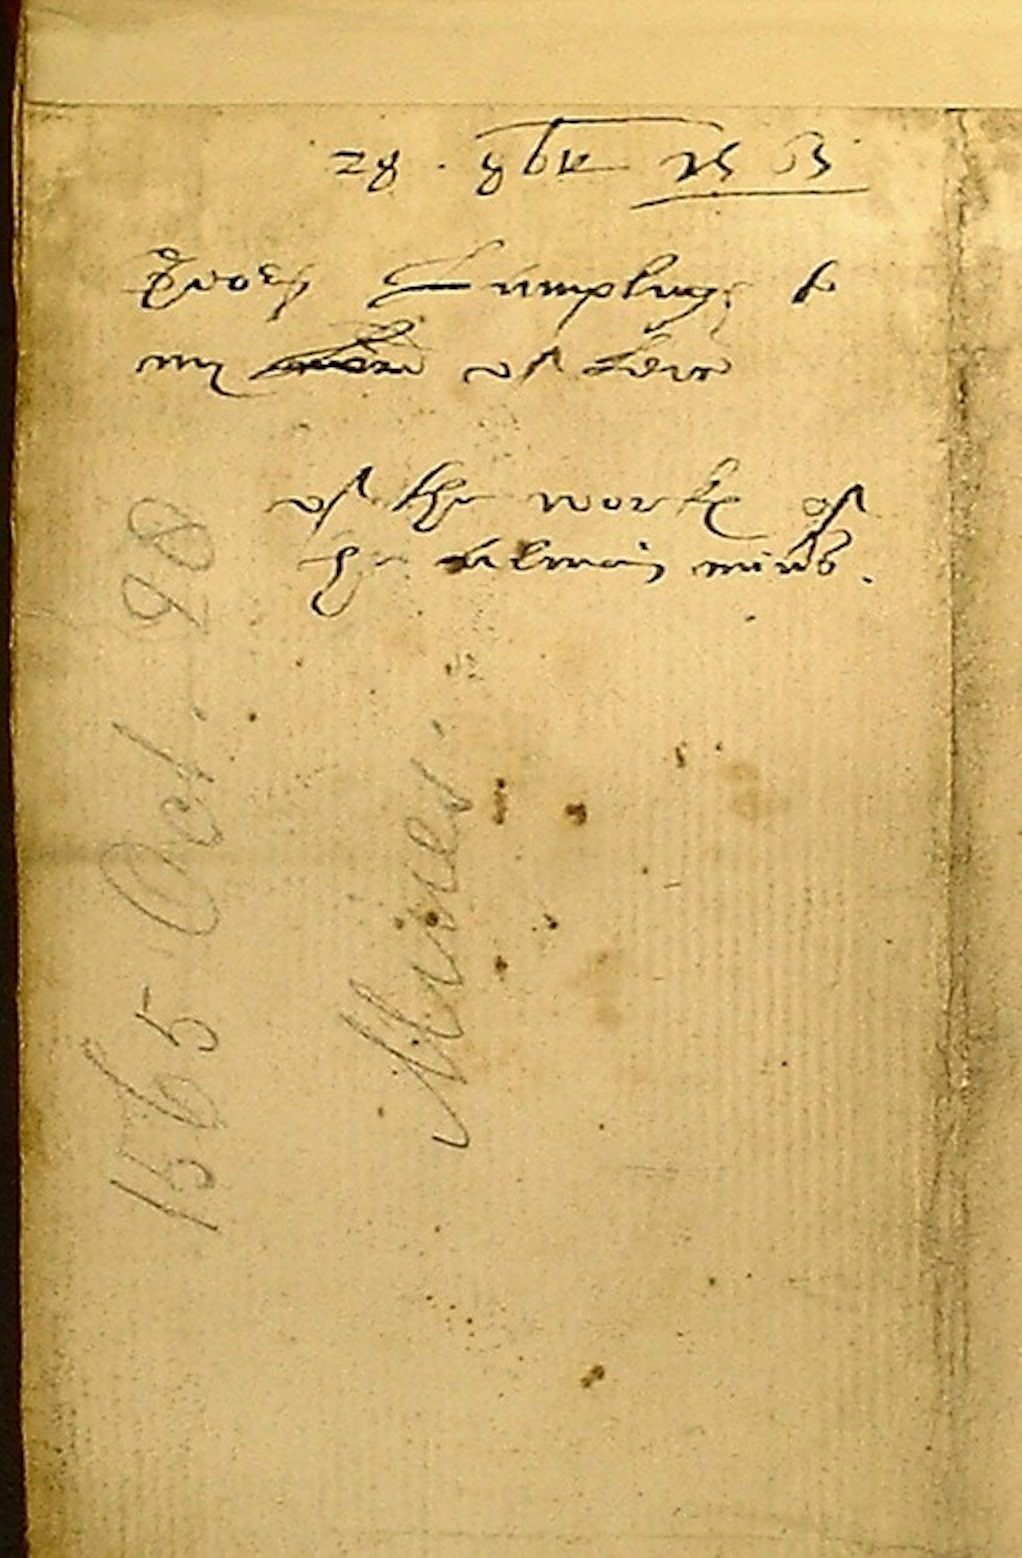 28 · 8bre 1565
Georg Humphrey to
my of
of the works of
the Almain mines.
1565 Oct. 28
Mines